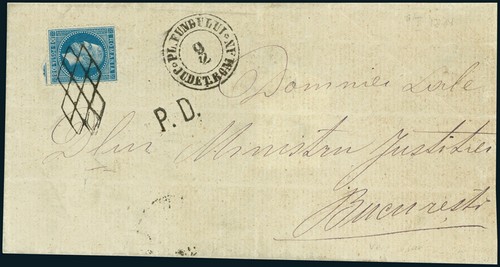 PL. FUNDULUI
JUDET. R.
9
P. D.
Domniei Sale
Dlui Ministru Justitiei
Bucuresti